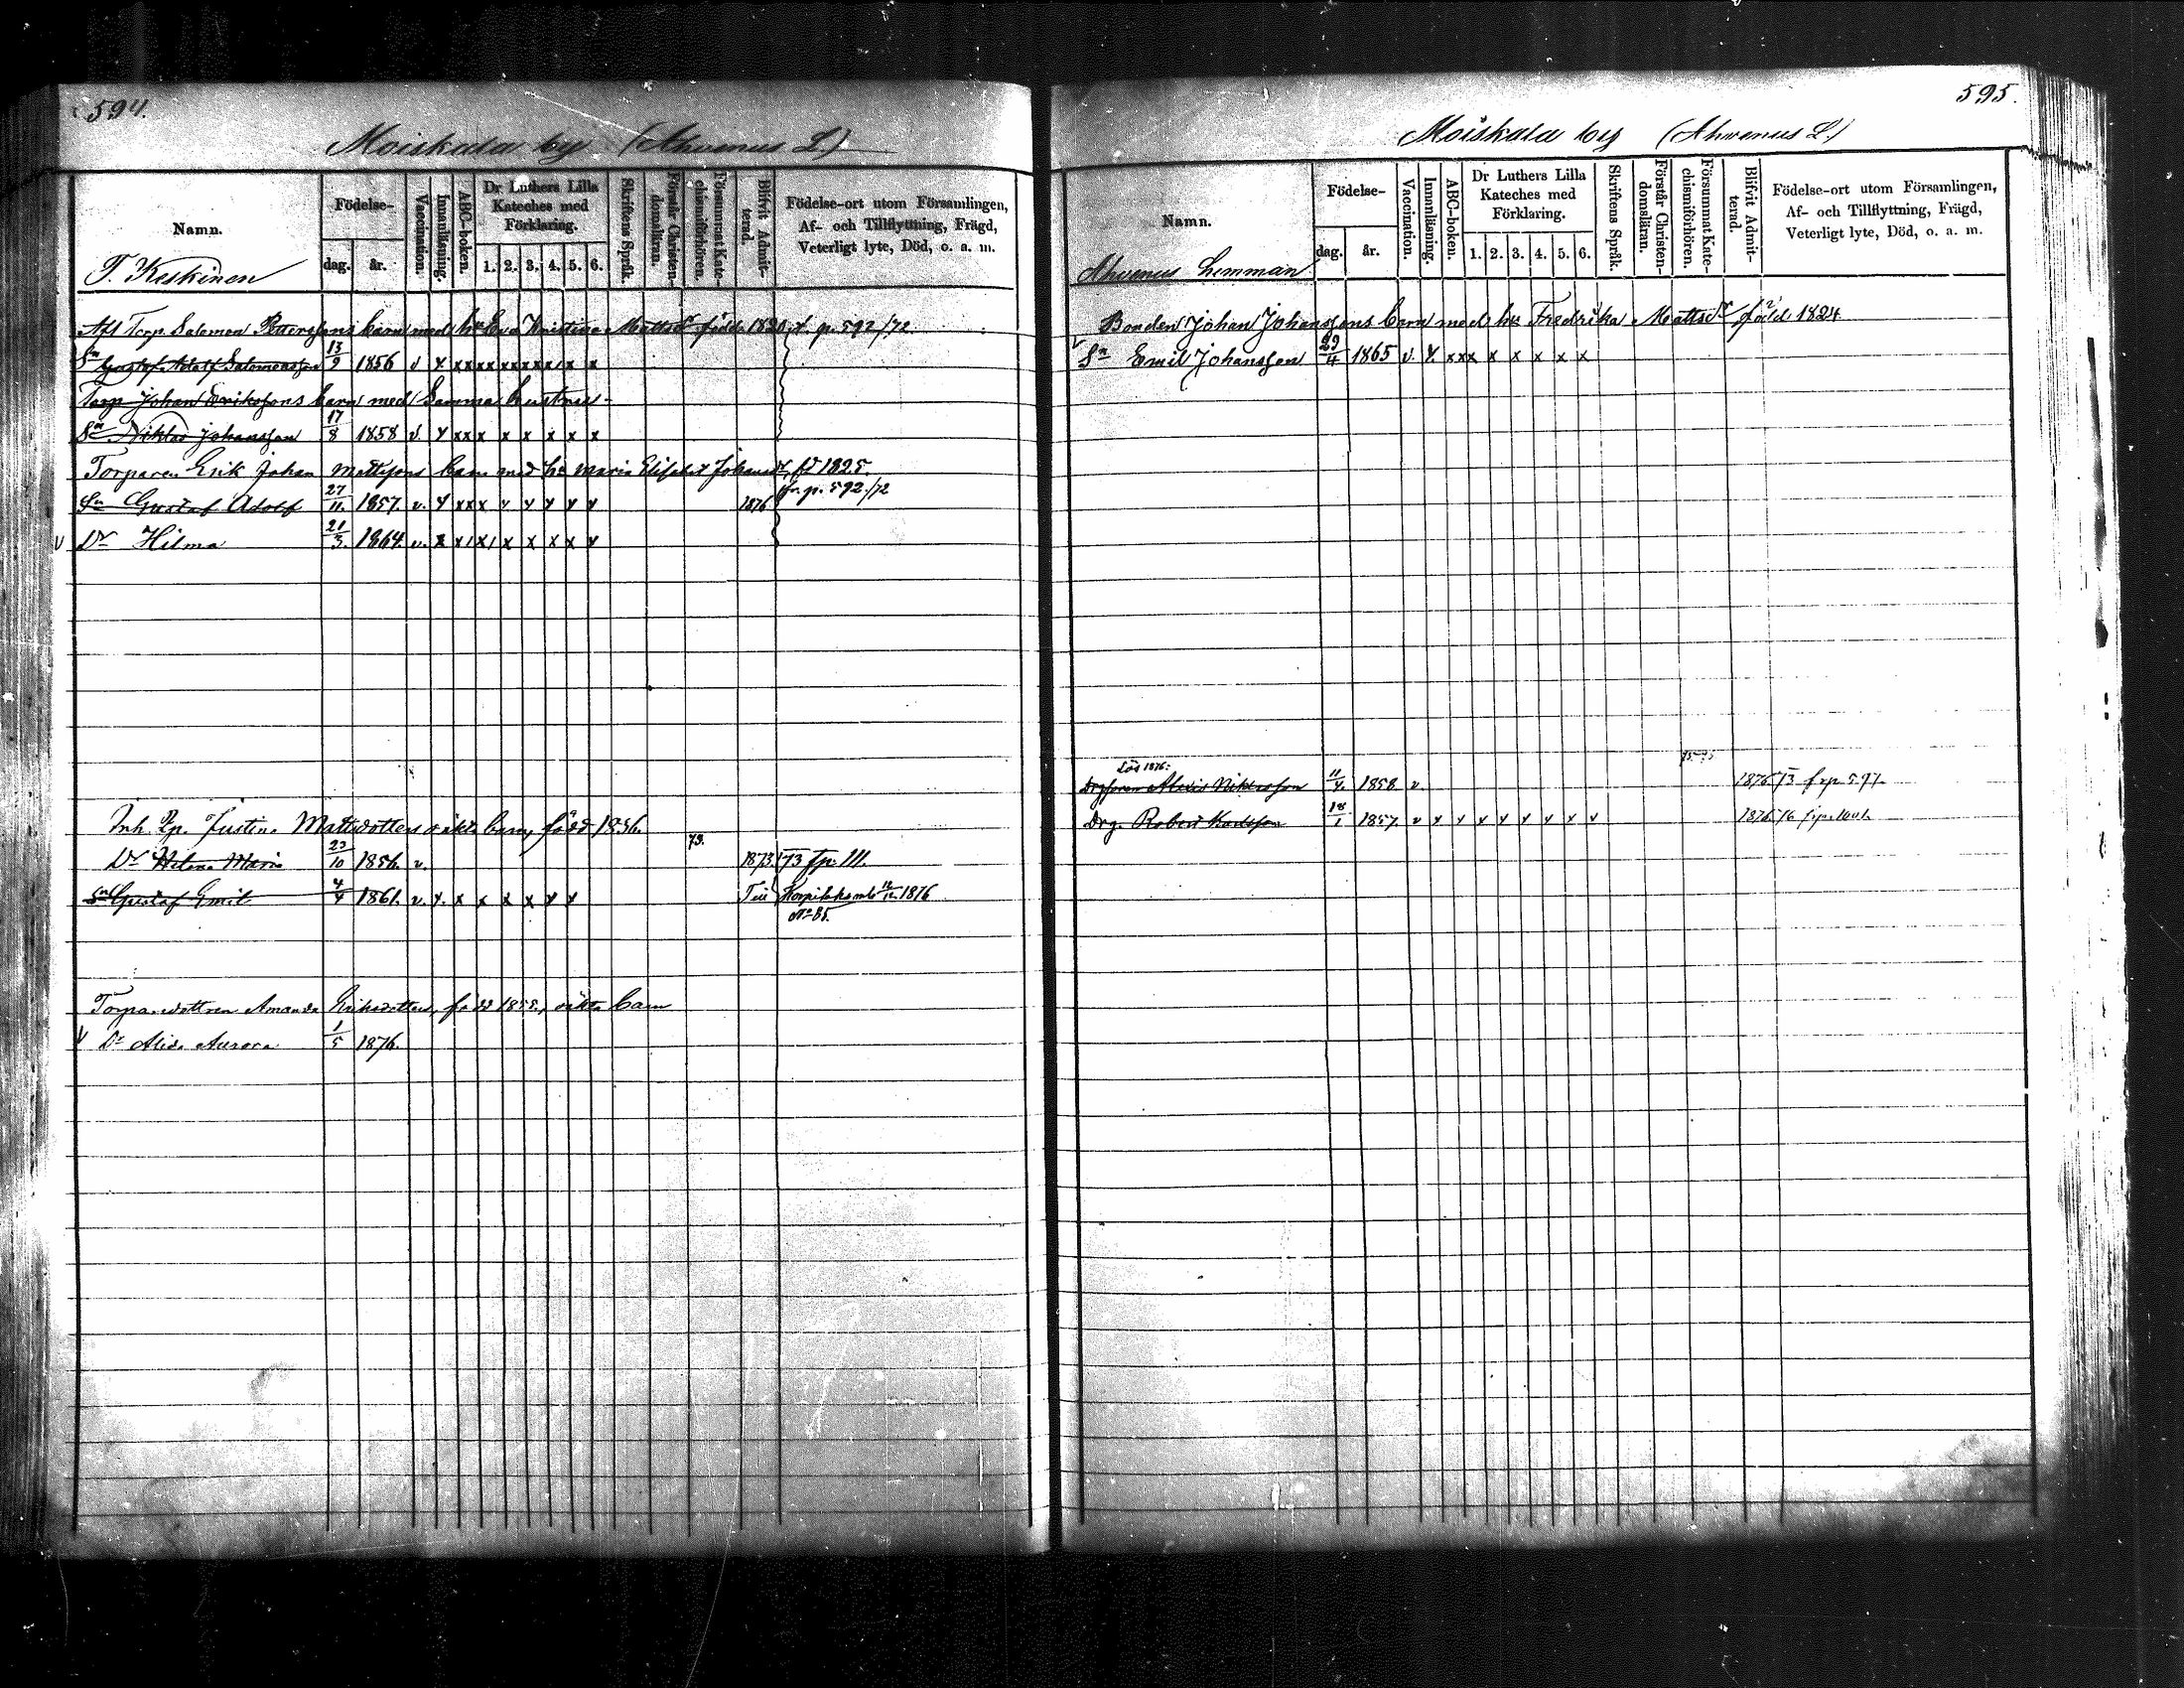 594.
Moiskala by (Ahvenus L)
Namn.
T. Keskinen
Födelse-
dag. år.
Vaccination.
Innanläsning.
ABC-boken.
Dr Luthers Lilla Kateches med Förklaring.
1. 2. 3. 4. 5. 6.
Skriftens Språk.
Förstår Christen-domsläran.
Försummat Kate-chismiförhören.
Blifvit Admit-terad.
Födelse-ort utom Församlingen,
Af- och Tillflyttning, Frägd,
Veterligt lyte, Död, o. a. m.
Afl Torp. Salomon Petterssons barn med h. Eva Kristina Mattsdr födde 1820, t. p. 592/72
Sn Gustaf Adolf Salomonsson 13/9 1856 v x x x x x x x x x x x x
Torp Johan Erikssons barn med Samma hustru-
Sn Niklas Johansson 17/8 1858 v. x x x x x x x x x
Torparen Erik Johan Mattssons barn med h. Maria Elisabet Johansdr, fd 1825.
Sn Gustaf Adolf 27/11. 1857. v. x x x x v v v v v 1876 fr. p. 592/72
v Dr Hilma 21/3. 1864. v. x x x x x x x v
Inh. Justina Mattsdotters oäkta barn, född 1836.
Dr Helena Maria 23/10 1856. v. 73. 1873. 73 fp. 111.
Sn Gustaf Emil 4/4 1861. v. x. x x x x x x Till Korpilaks mb 12/12 1876
No 85.
Torparedottren Amanda Eriksdotters, född 1855, oäkta barn
v Dr Alida Aurora 1/5 1876.
595.
Moiskala by (Ahvenus L.)
Namn.
Ahvenus hemman
Födelse-
dag. år.
Vaccination.
Innanläsning.
ABC-boken.
Dr Luthers Lilla Kateches med Förklaring.
1. 2. 3. 4. 5. 6.
Skriftens Språk.
Förstår Christen-domsläran.
Försummat Kate-chismiförhören.
Blifvit Admit-terad.
Födelse-ort utom Församlingen,
Af- och Tillflyttning, Frägd,
Veterligt lyte, Död, o. a. m.
Bonden Johan Johanssons barn med h. Fredrika Mattsdr född 1824
v Sn Emil Johansson 29/4 1865 v. x. x x x x x x x x
Lös 1876:
Alexis 11/4. 1858 v 1876. 73 frp 597.
Drg. Robert Karlsson 18/1 1857. v v v v v v v v v 1876. 76